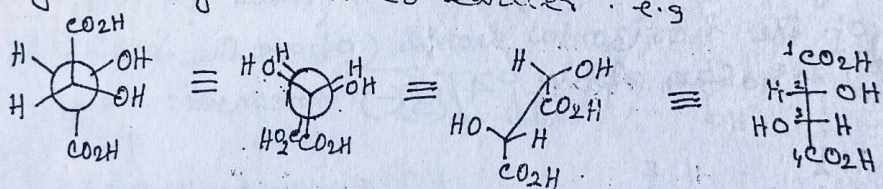 e.g
CO2H
H OH
H OH
CO2H
≡
HO H H OH
HO2C CO2H
≡
H OH
CO2H
HO H
CO2H
≡
1 CO2H
H 2 OH
HO 3 H
4 CO2H